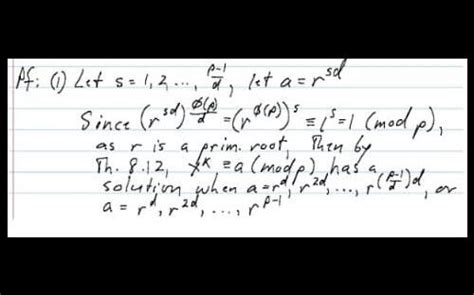 Pf: (1) Let s = 1, 2, ..., (p-1)/d, let a = r^{sd}
Since (r^{sd})^{φ(p)/d} = (r^{φ(p)})^s ≡ 1^s = 1 (mod p),
as r is a prim. root, Then by
Th. 8.12, x^k ≡ a (mod p) has a
solution when a = r^d, r^{2d}, ..., r^{((p-1)/d)d}, or
a = r^d, r^{2d}, ..., r^{p-1}